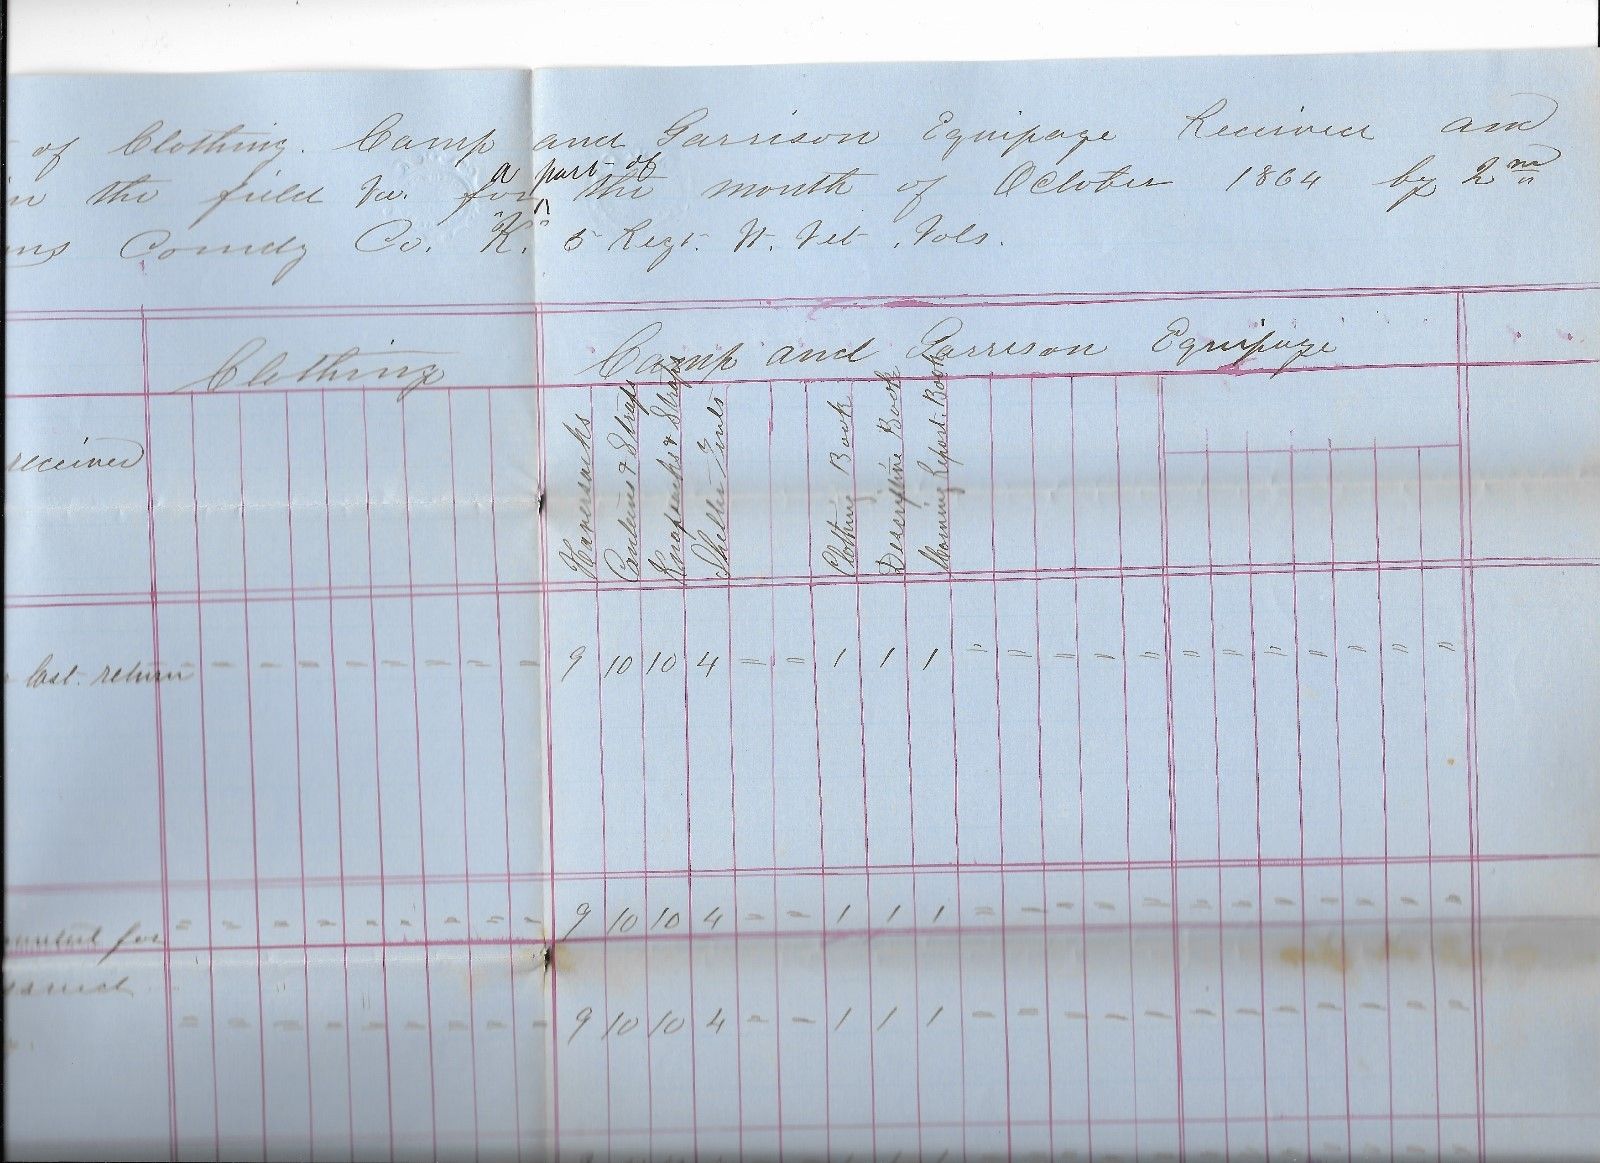 of Clothing. Camp and Garrison Equipage Received and
a part of
in the field Va. for the month of October 1864 by 2nd
Comdg Co. "K." 5 Regt. Vt. Vet. Vols.
Clothing
Camp and Garrison Equipage
received
Haversacks
Canteens & Straps
Knapsacks & Straps
Shelter Tents
Clothing Book
Descriptive Book
Morning Report Book
last return = = = = = = = = = 9 10 10 4 = = 1 1 1 = = = = = = = = = = =
for = = = = = = = = = 9 10 10 4 = = 1 1 1 = = = = = = = = = = =
= = = = = = = = = 9 10 10 4 = = 1 1 1 = = = = = = = = = = =